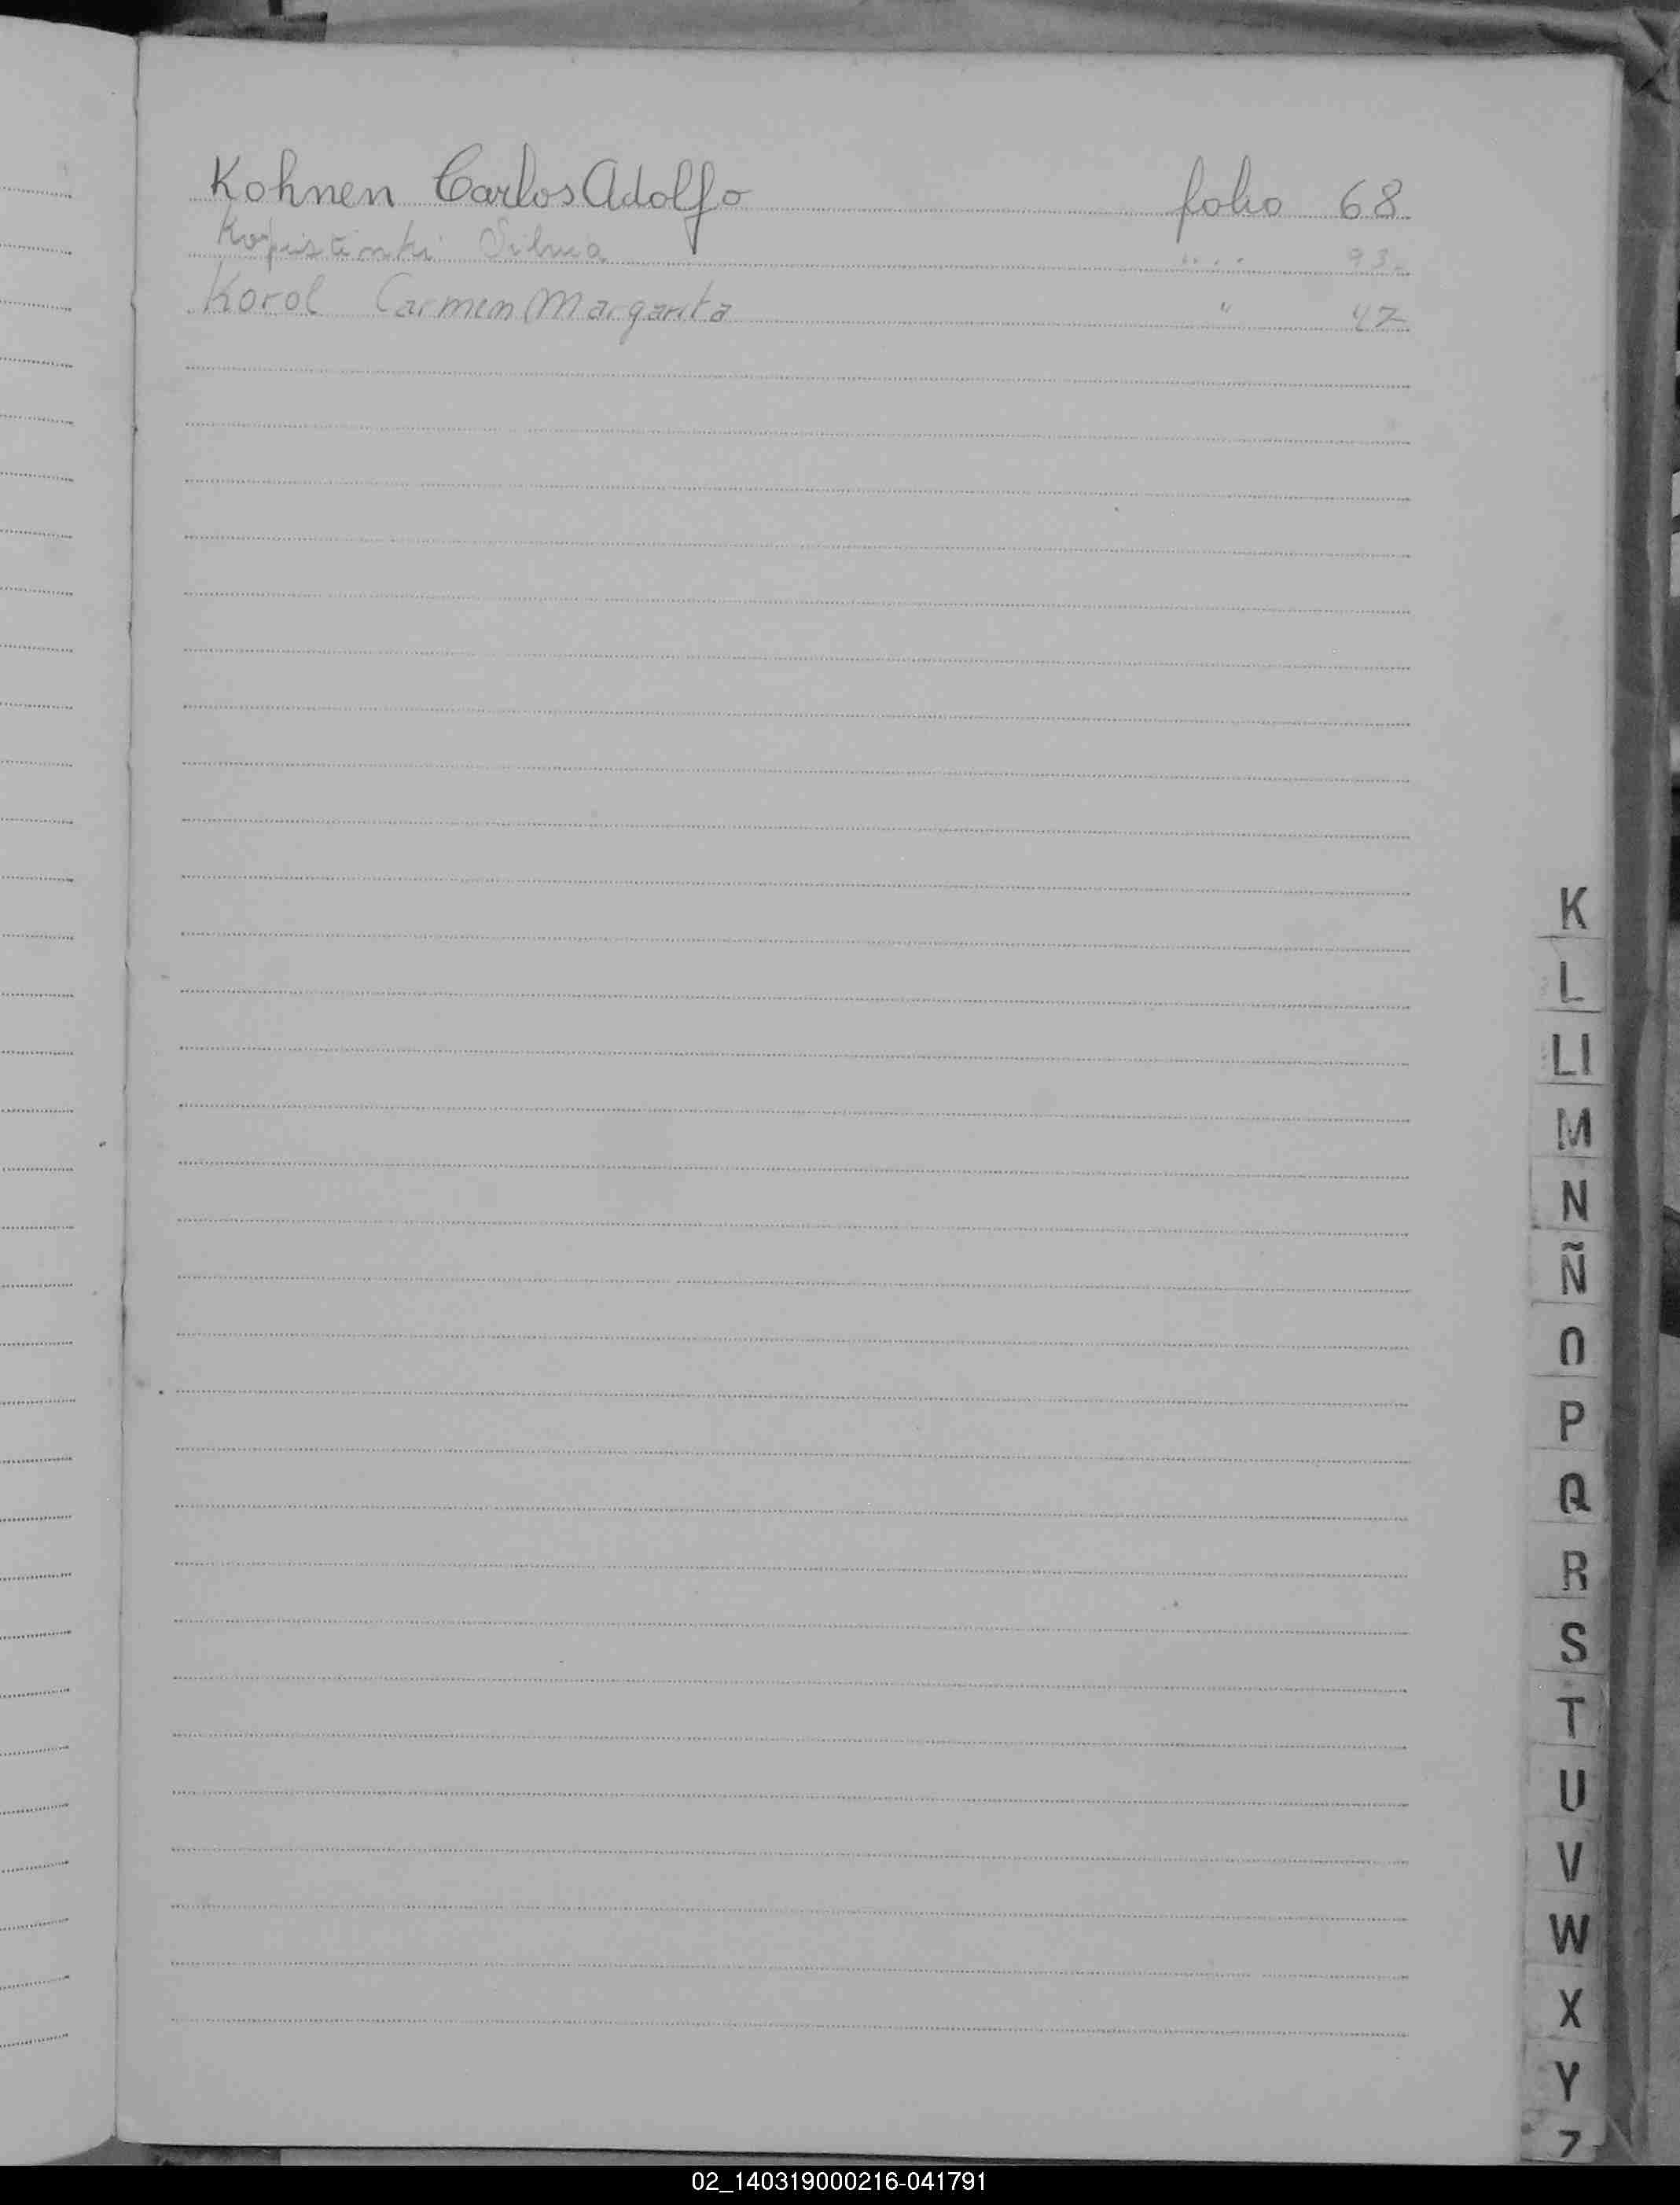 Kohnen Carlos Adolfo folio 68
Silvia .... 93
Korol Carmen Margarita " 47
K
L
Ll
M
N
Ñ
O
P
Q
R
S
T
U
V
W
X
Y
Z
02_140319000216-041791